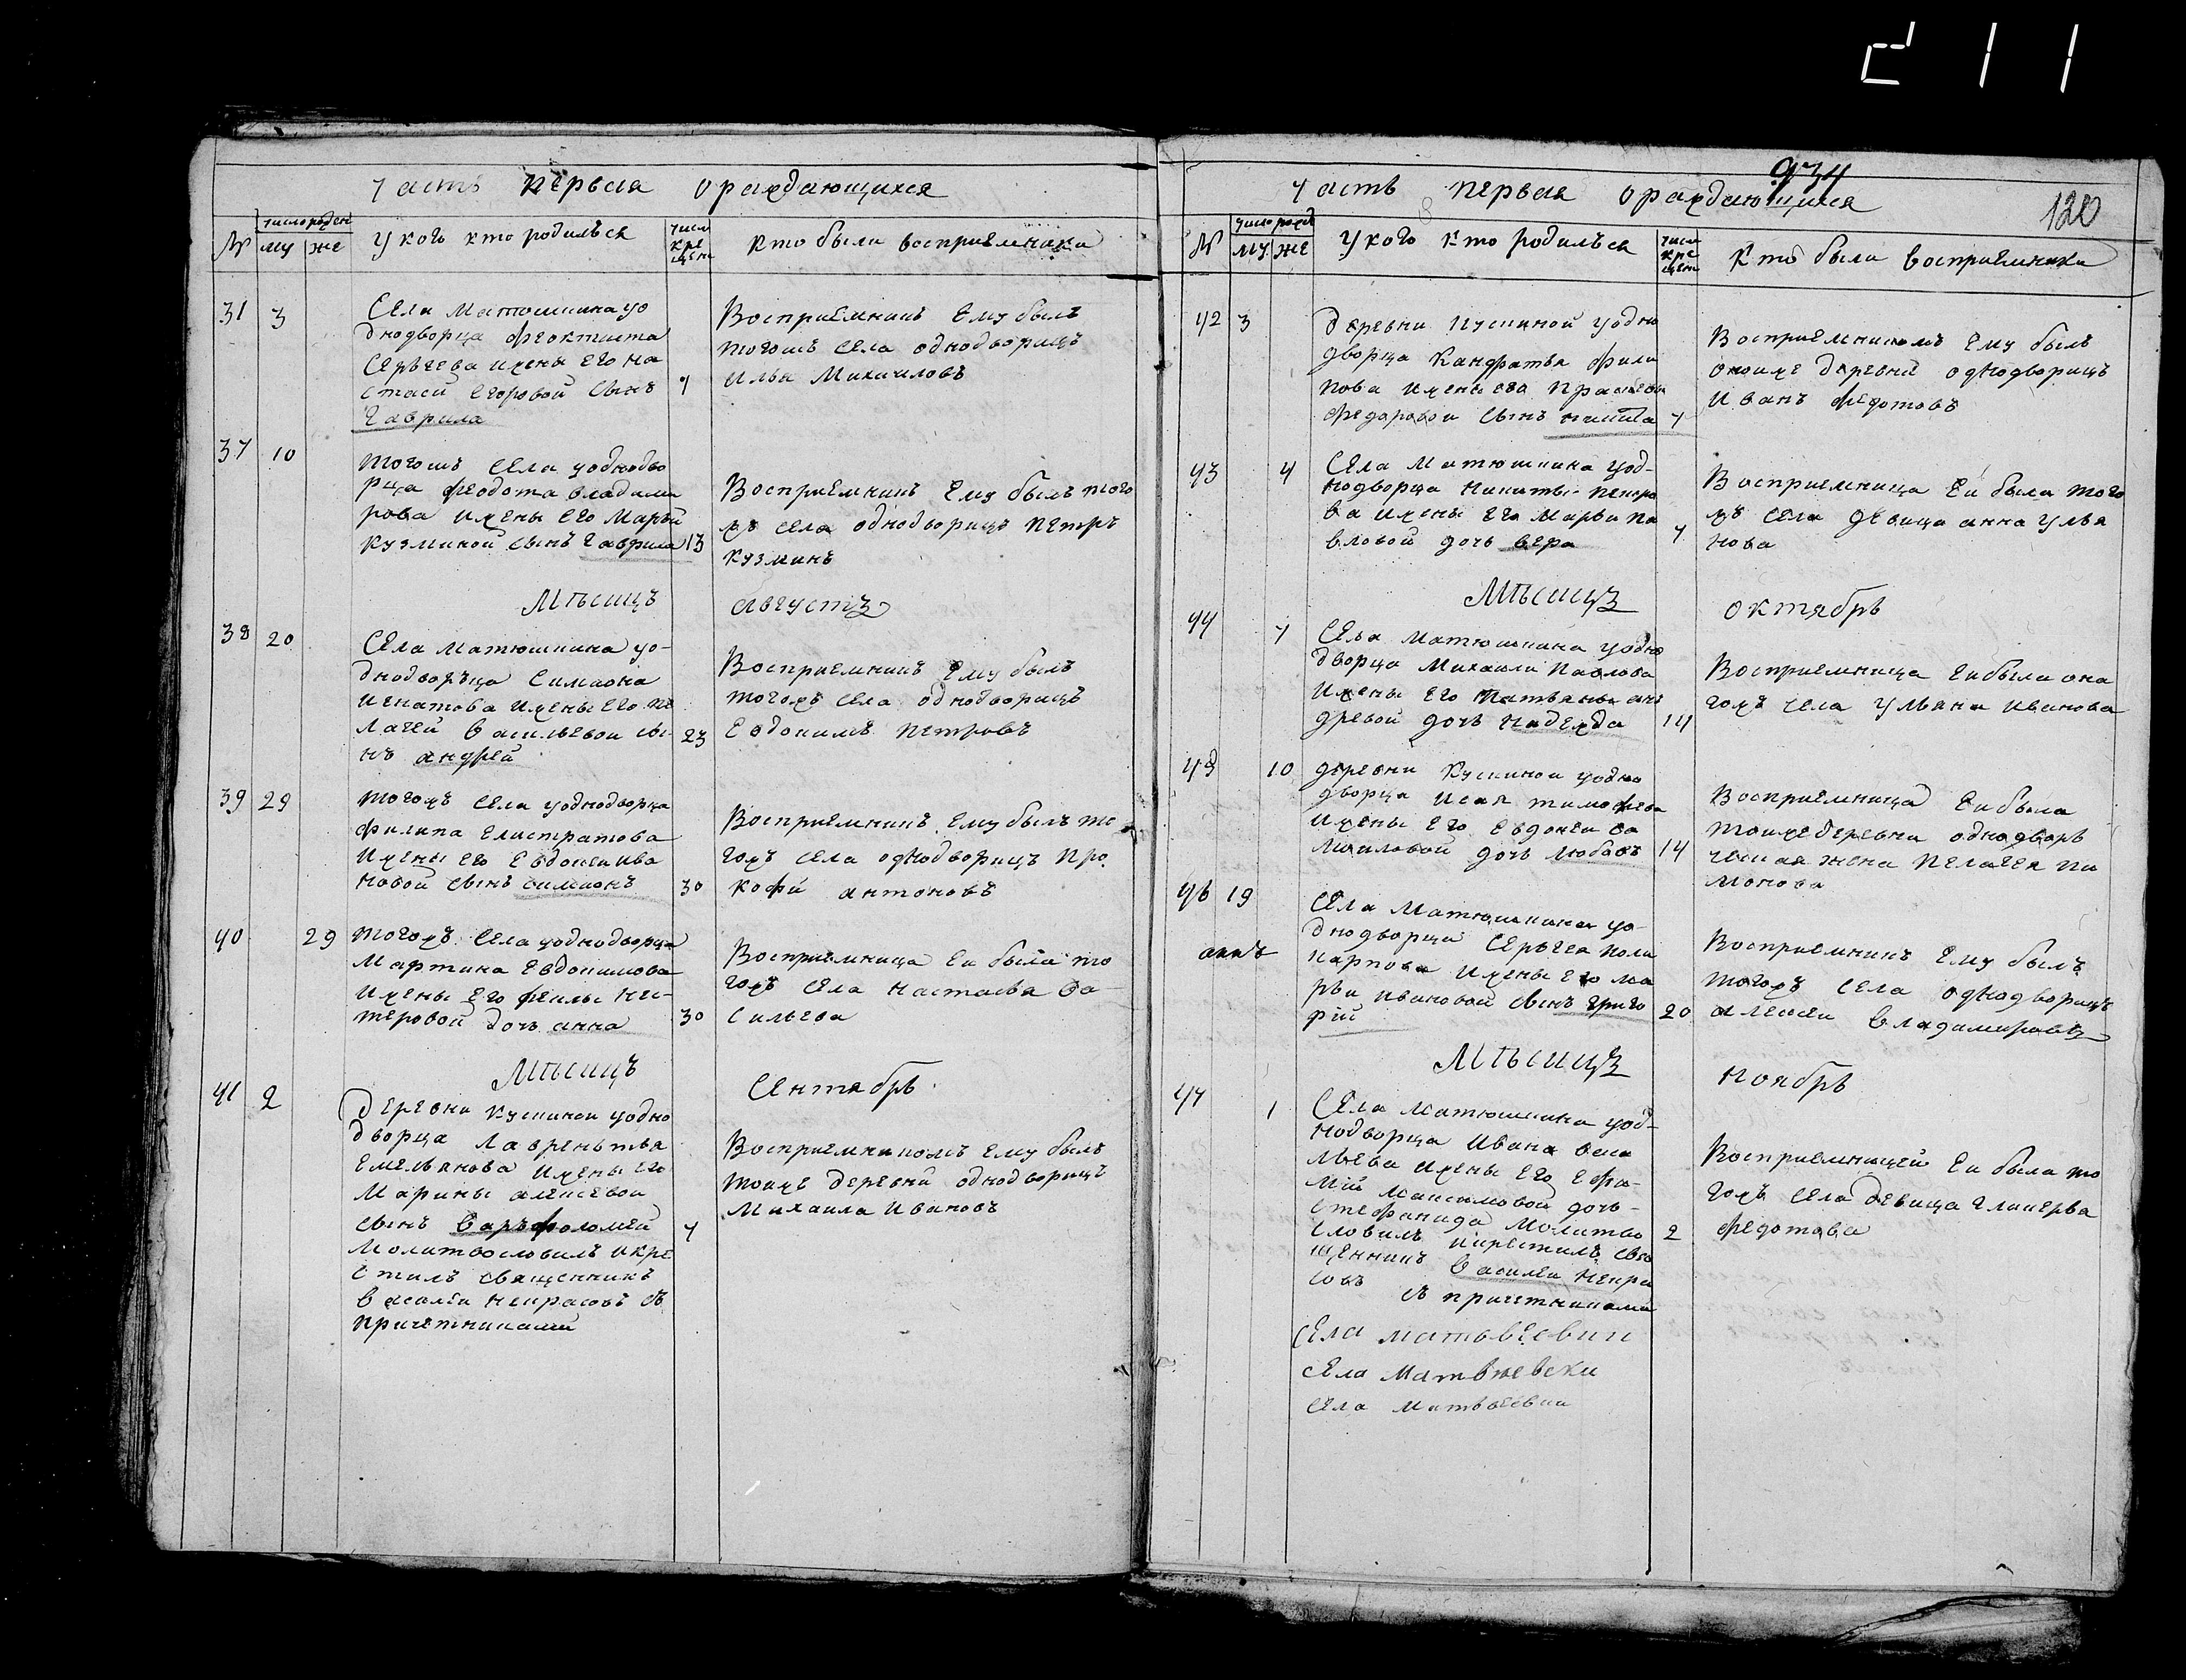 211
часть первая о раждающихся
число рожден
№ му же У кого кто родилься числ кре щен Кто были восприемники
31 3
Села Матюшкина у о
днодворца феоктиста
Сергеева и жены его На
стаси Егоровой сынъ 7
Гаврила
Восприемникъ Ему былъ
тогожъ села однодворицъ
Илья Михаиловъ
37 10
тогожъ села у однодво
рца феодота владими
рова и жены его Марьи
кузминой сынъ Гаврила 13
Восприемникъ Ему былъ того
жъ села однодворицъ петръ
кузминъ
Мѣсицъ Августъ
38 20
Села Матюшкина у о-
днодворъца Симиона
игнатова и жены Его пе
лагеи васильевой сы- 23
нъ андрей
Восприемникъ Ему былъ
тогожъ села однодворицъ
Евдокимъ петровъ
39 29
тогожъ села у однодворца
филипа Елистратова
и жены Его Евдокеи ива
новой сынъ симионъ 30
Восприемникъ Ему былъ то
гожъ села однодворицъ про
кофи антоновъ
40 29
тогожъ села у однодворца
Мартина Евдокимова
и жены Его феклы
дочь анна 30
Восприемница Еи была то
гожъ села настасья ва-
сильева
Мѣсицъ Сентябрь
41 2
деревни Кускинои у одно
дворца лаврентья
Емельянова и жены Его
Марины алексевои
сынъ варъфоломей 7
Молитвословилъ и кре
стилъ священникъ
василеи некрасовъ съ
причетниками
Восприемникомъ Ему былъ
тоиже деревни однодворицъ
Михаила ивановъ
934
120
часть первая о раждающихся
число рожд
№ му же У кого кто родилься числ кре щен Кто были восприемники
42 3
деревни Кускиной у одно
дворца Канфратья фили
пова и жены ево прасковьи
федаровои сынъ никита 7
Восприемникомъ Ему былъ
оноиже деревни однодворицъ
иванъ федотовъ
43 4
Села Матюшкина у од-
нодворца Никиты петро
ва и жены его Марьи па
вловой дочь вера 7
Восприемница Еи была того
жъ села девица анна улья
нова
Мѣсицъ октябрь
44 7
Села Матюшкина у одно
дворца Михаила Павлова
и жены Его татьяны ан
древой дочь Надежда 14
Восприемница Еи была она
гожъ села ульяна иванова
45 10
деревни Кускинои у одно
дворца исая тимофева
и жены Его Евдокеи са
моиловой дочь любовъ 14
Восприемница Еи была
тоиже деревни однодворъ
ческая жена пелагея па
монова
46 19
Села Матюшкина у о-
днодворца Сергея поли
карпова и жены Его ма
рьи ивановой сынъ григо 20
рий
Восприемникъ Ему былъ
тогожъ села однодворицъ
алексеи владимировъ
Мѣсицъ Ноябрь
47 1
Села Матюшкина у од-
нодворца Ивана васи
льева и жены Его Ефи-
мии Максимовой дочь-
стефанида Молитво 2
словилъ и крестилъ свя
щенникъ василеи некра
совъ съ причетниками
Восприемницей Еи была то
гожъ села девица гликерья
федотова
села матьвеевки
села Матвеевски
села Матвеевки